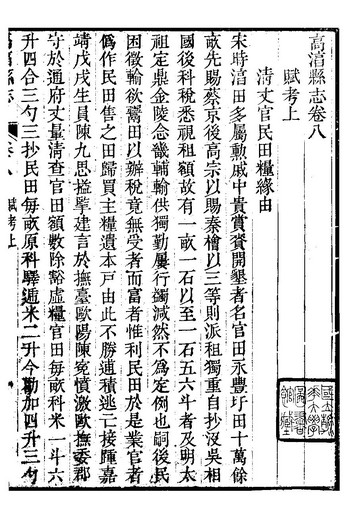 高淳縣志卷八
賦考上
清丈官民田糧緣由
宋時淳田多屬勳戚中貴賞賚開墾者名官田永豐圩田十萬餘
畝先賜蔡京後高宗以賜秦檜以三等則派租獨重自抄沒吳相
國後科稅悉視租額故有一畝一石以至一石五六斗者及明太
祖定鼎金陵念畿輔輸供獨勤屢行蠲減然不為定例也嗣後民
困徵輸欲鬻田以辦稅竟無受者而富者惟利民田於是業官者
偽作民田售之田歸買主糧遺本戶由此不勝逋積逃亡接踵嘉
靖戊戌生員陳九思揔擥建言於撫臺歐陽陳寃憤激歐撫委郡
守於通府丈量清查官田額數除豁虛糧官田每畝科米一斗六
升四合三勺三抄民田每畝原科驛逓米二升今勒加四升三勺
高淳縣志
卷八
賦考上